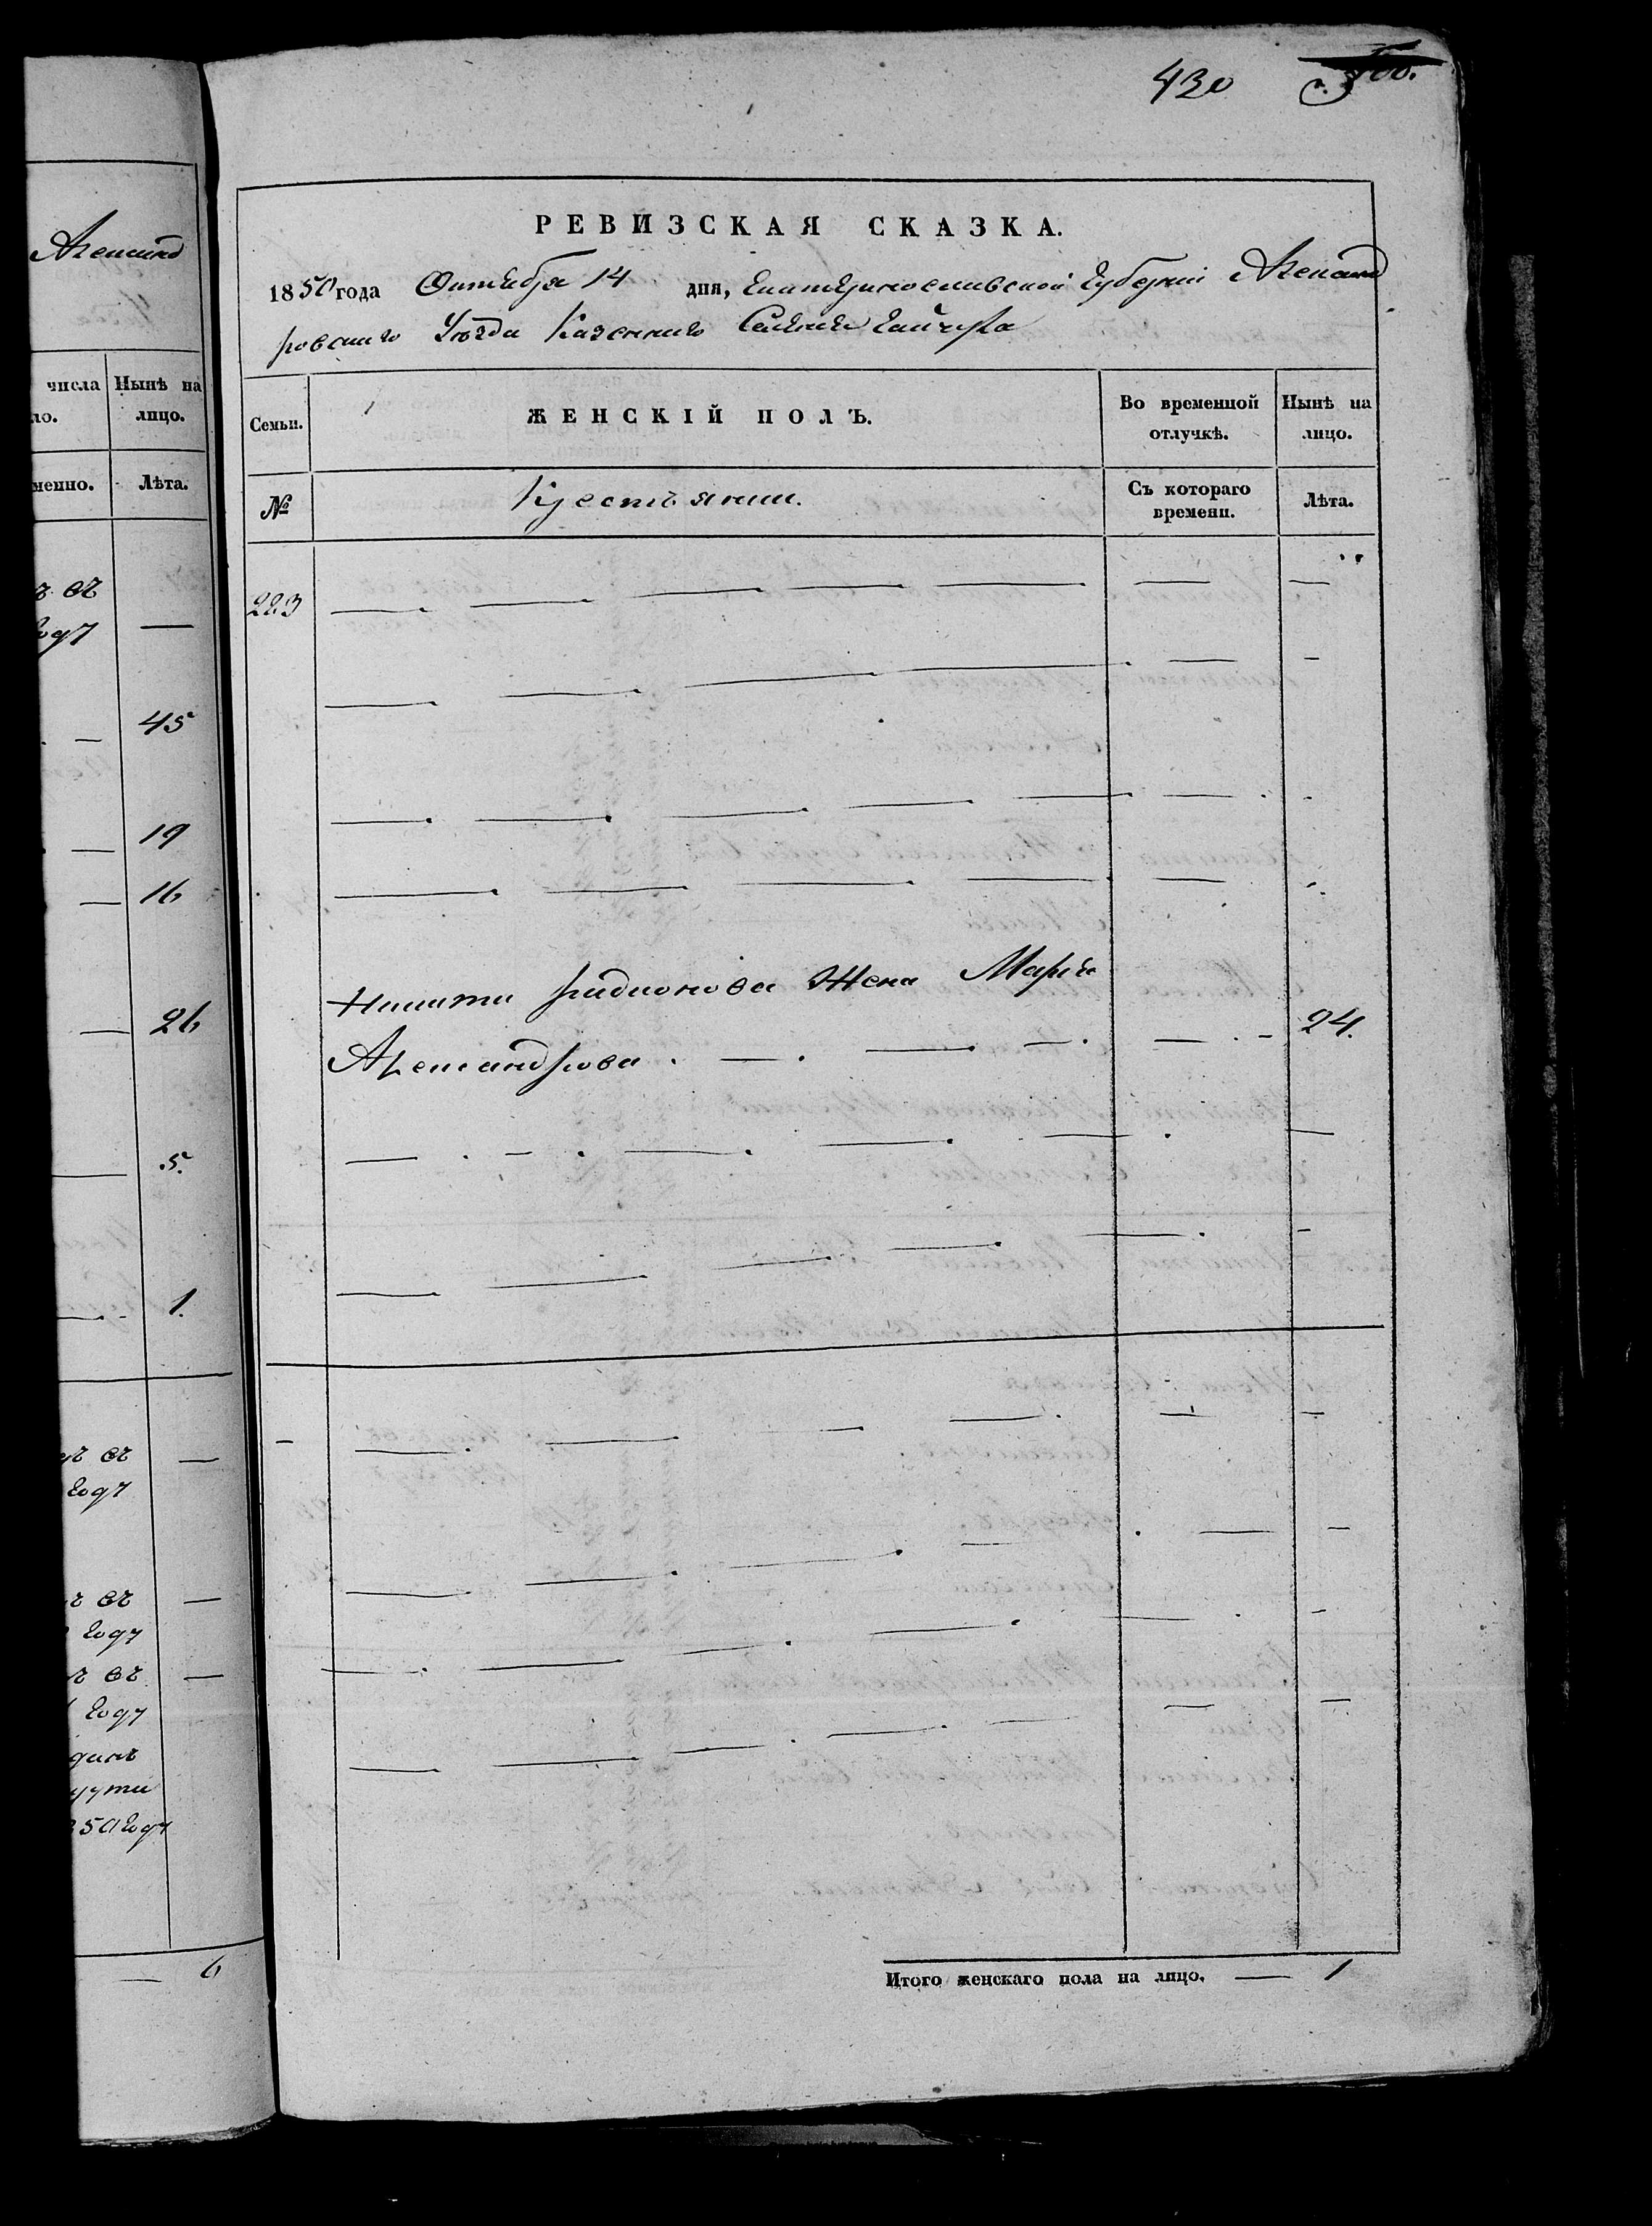 Александ
числа Нынѣ на
ло. лицо.
менно. Лѣта.
ъ въ
году —
— 45
— 19
— 16
— 26
— 5.
— 1.
ъ въ —
году
ъ въ —
году
ъ въ —
году
850 году
— 6
430
РЕВИЗСКАЯ СКАЗКА.
1850 года Октября 14 дня, Екатеринославской Губерніи Александ
ровскаго Уѣзда Казеннаго Селенія Гайчура
Семьи. ЖЕНСКІЙ ПОЛЪ. Во временной отлучкѣ. Нынѣ на лицо.
№ Крестьянки. Съ котораго времени. Лѣта.
223
Никиты Радионова Жена Марія
Александрова . — . — — . — . - 24.
Итого женскаго пола на лицо. — 1